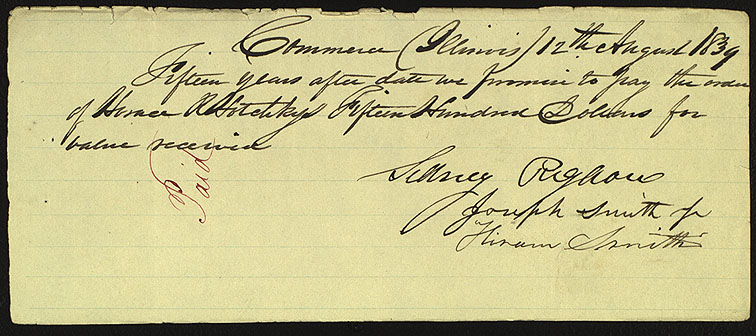 Commerce (Illinois) 12th August 1839
Fifteen years after date we promise to pay the order
of Horace R Hotchkiss Fifteen Hundred Dollars for
value received
Paid
Sidney Rigdon
Joseph Smith Jr
Hiram Smith